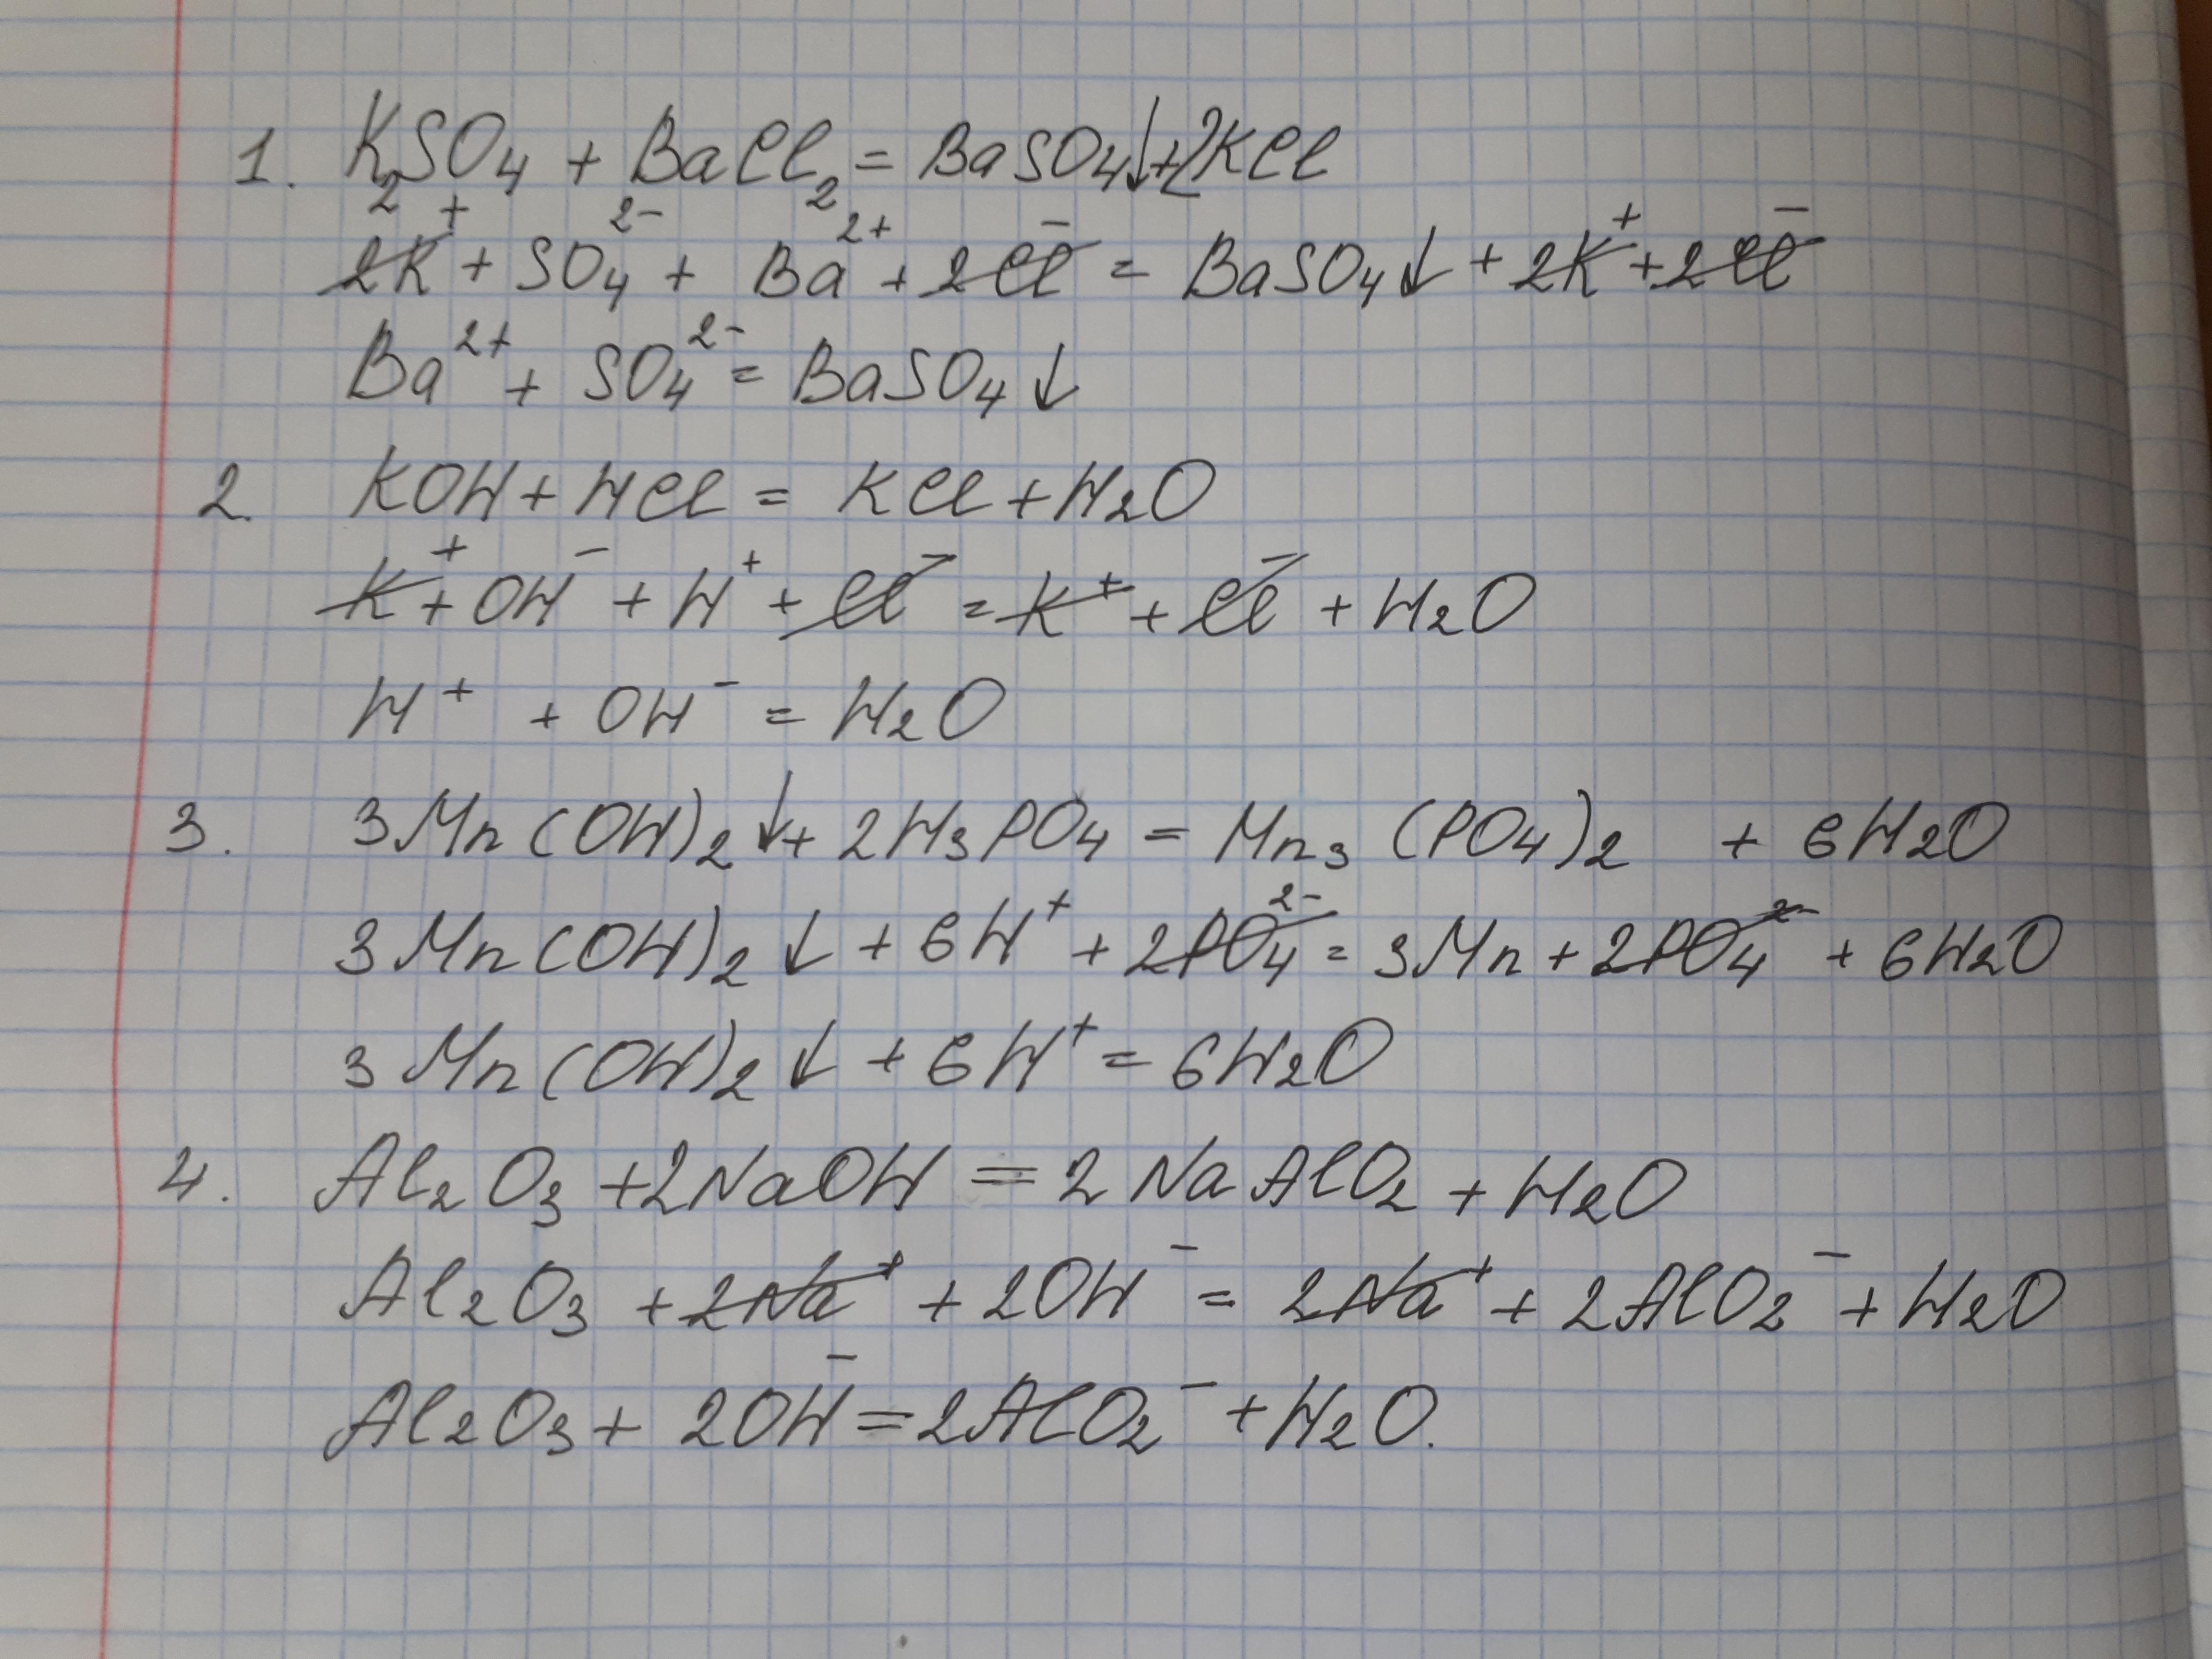 1. K₂SO₄ + BaCl₂ = BaSO₄↓ + 2KCl
2K⁺ + SO₄²⁻ + Ba²⁺ + 2Cl⁻ = BaSO₄↓ + 2K⁺ + 2Cl⁻
Ba²⁺ + SO₄²⁻ = BaSO₄↓
2. KOH + HCl = KCl + H₂O
K⁺ + OH⁻ + H⁺ + Cl⁻ = K⁺ + Cl⁻ + H₂O
H⁺ + OH⁻ = H₂O
3. 3Mn(OH)₂↓ + 2H₃PO₄ = Mn₃(PO₄)₂ + 6H₂O
3Mn(OH)₂↓ + 6H⁺ + 2PO₄²⁻ = 3Mn + 2PO₄²⁻ + 6H₂O
3Mn(OH)₂↓ + 6H⁺ = 6H₂O
4. Al₂O₃ + 2NaOH = 2NaAlO₂ + H₂O
Al₂O₃ + 2Na⁺ + 2OH⁻ = 2Na⁺ + 2AlO₂⁻ + H₂O
Al₂O₃ + 2OH⁻ = 2AlO₂⁻ + H₂O.